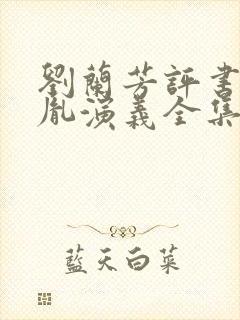 劉蘭芳評書
胤演義全集
藍天白菜